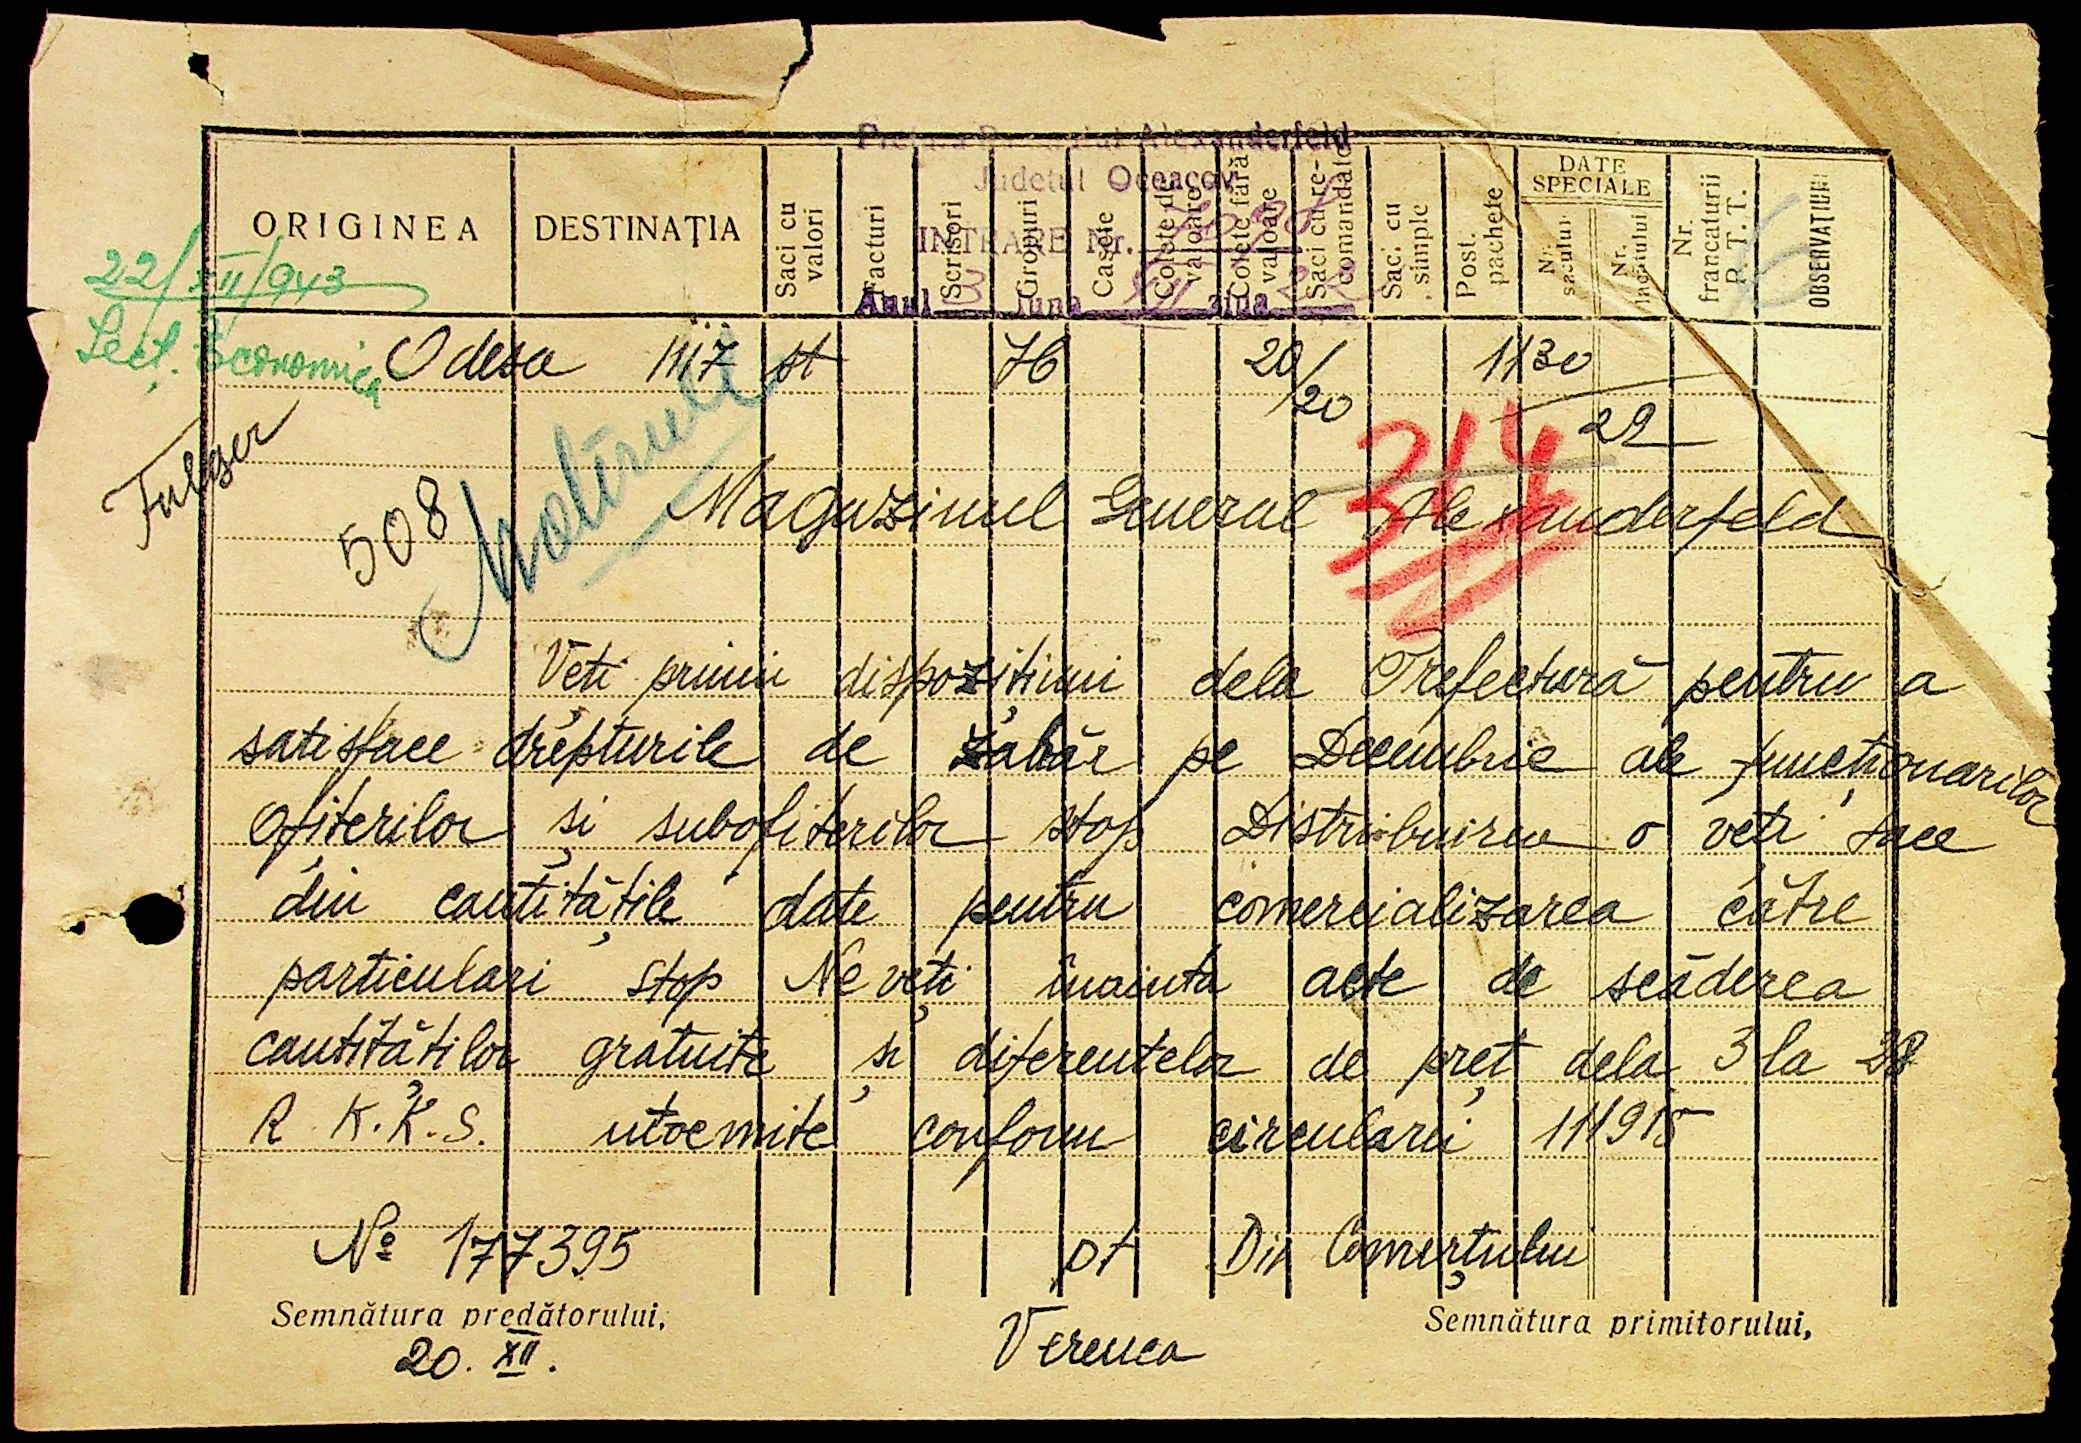 Alexanderfeld
Judetul Oceacov
INTRARE Nr.
Anul 3 luna XII ziua 22
ORIGINEA DESTINAȚIA Saci cu valori Facturi Scrisori Gropuri Casete Colete de valoare Colete fără valoare Saci cu recomandate Sac. cu simple Post. pachete DATE SPECIALE Nr. sacului Nr. lacătului Nr. francaturii P. T. T. OBSERVAȚIUNI
22/XII/943
Sect. Economica
Odesa 1117 st 76 20/20 1130
22
Fulger
508
314
Magazinul General Alexanderfeld
Veți primi dispozițiuni dela Prefectură pentru a
satisface drepturile de zahăr pe Decembrie ale funcționarilor
ofițerilor și subofițerilor stop Distribuirea o veți face
din cantitățile date pentru comercializarea către
particulari stop Ne veți înainta acte de scăderea
cantităților gratuite și diferentelor de preț dela 3 la 28
R. K. K. S. întocmite conform circularii 111915
No 177395 pt Dir Comerțului
Semnătura predătorului, Semnătura primitorului,
20. XII. Verenca